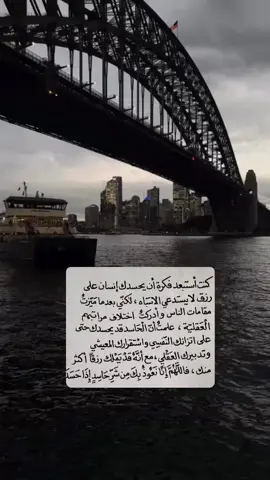 كنت أستبعد فكرة أن يحسدك إنسان على
رزق لا يستدعي الانتباه ، لكني بعدما ميّزتُ
مقامات الناس وأدركتُ اختلاف مراتبهم
العقليّة ، علمتُ أنّ الحاسد قد يحسدك حتى
على اتزانك النفسي واستقرارك المعيشي
وتدبيرك العقلي ، مع أنّه قد يملك رزقًا أكثر
منك ، فاللّهُمَّ إنّا نعوذُ بِكَ مِن شَرِّ حَاسِدٍ إِذَا حَسَدَ